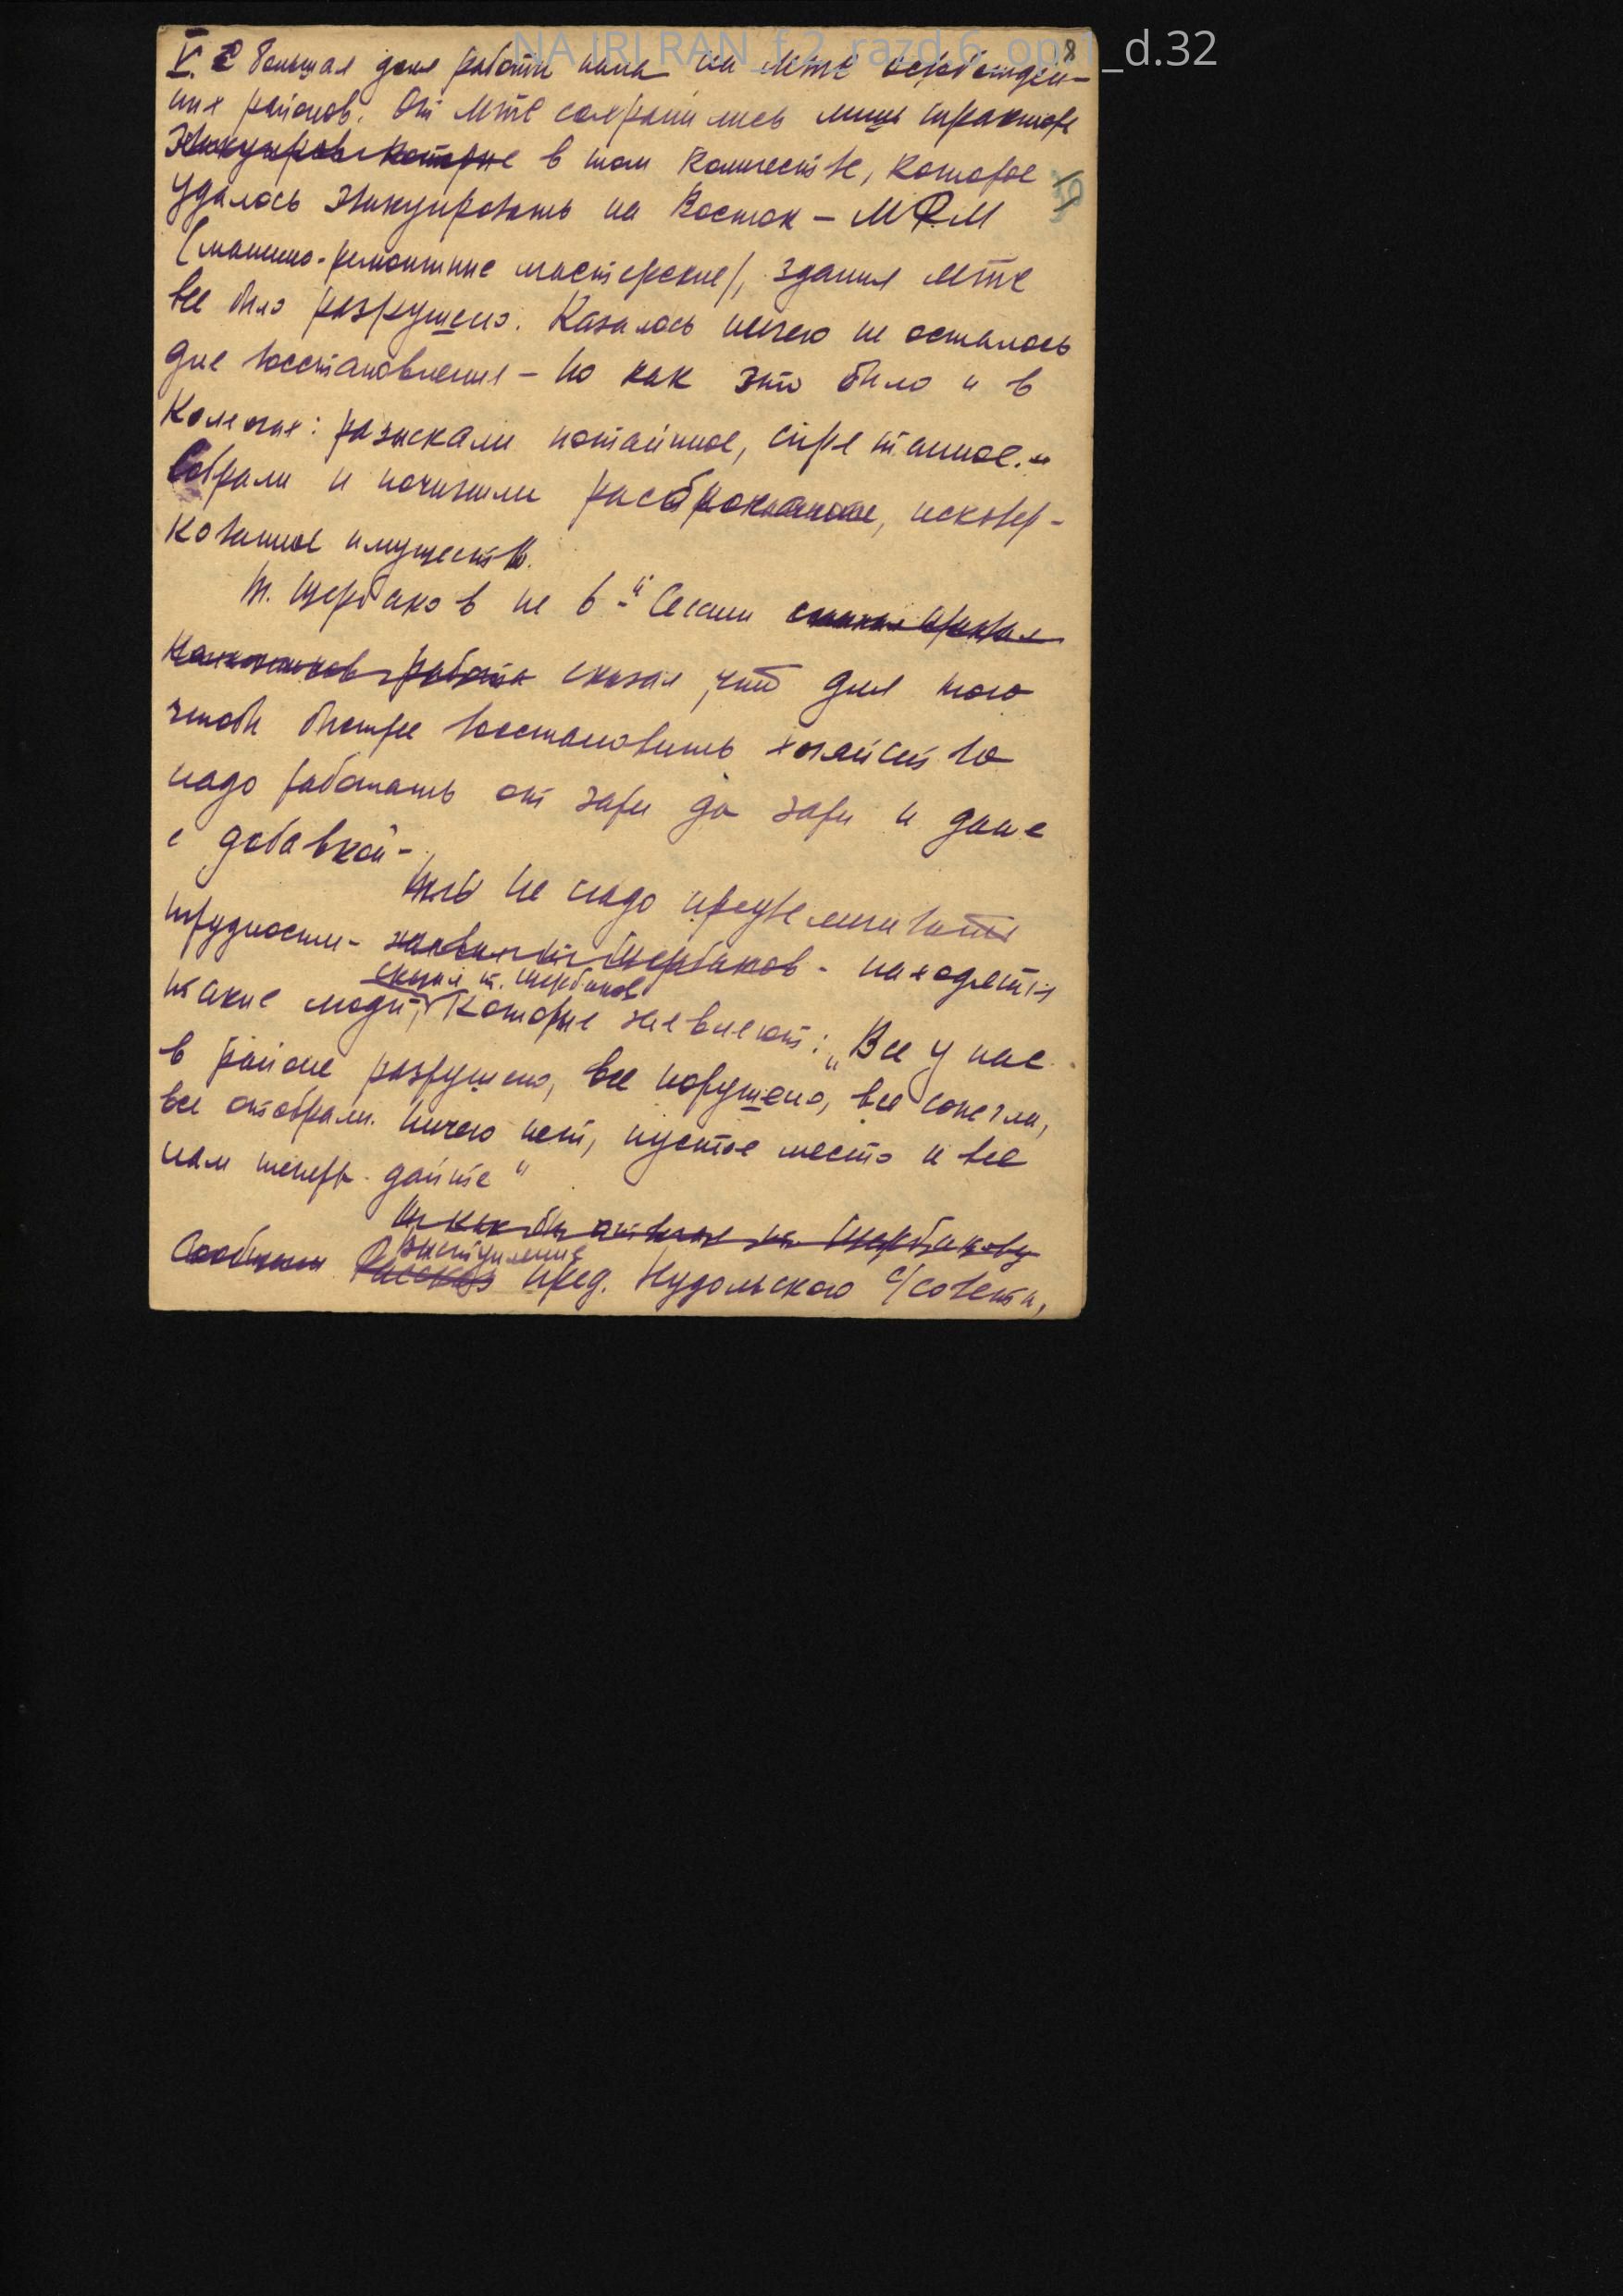 NA IRI RAN_f.2_razd.6_op.1_d.32
8
V. Большая доля работы пала на МТС освобожден-
ных районов. От МТС сохранились лишь трактора
в том количестве, которое
удалось эвакуировать на Восток – МРМ
(машино-ремонтные мастерские), здания МТС
все было разрушено. Казалось ничего не осталось
для восстановления – но как это было и в
колхозах: разыскали потайное, спрятанное и
собрали и починили исковер-
кованное имущество.
Т. Щербаков на 6-й Сессии
работа сказал, что для того
чтобы быстрее восстановить хозяйство
надо работать от зари до зари и даже
с добавкой –
Но не надо преувеличивать
трудности – заявил т. Щербаков – находятся
сказал т. Щербаков
такие люди, которые заявляют: „Все у нас
в районе разрушено, все порушено, все сожгли,
все отобрали. Ничего нет, пустое место и все
нам теперь дайте"
Щербакову
выступление
Сообщил Рассказ пред. Нудольского с/совета,